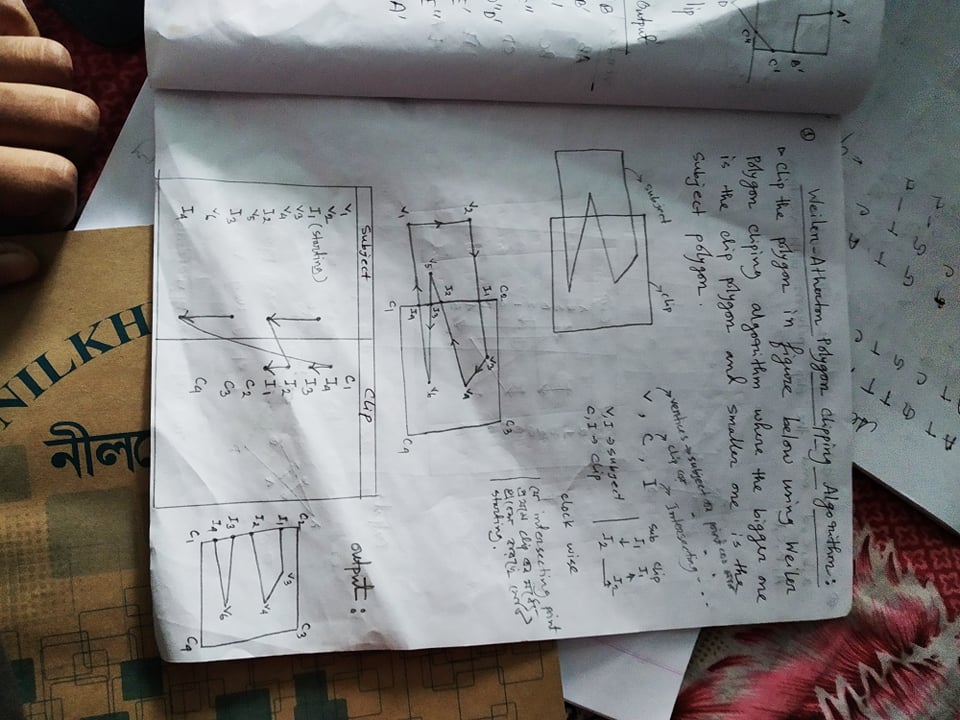 A'
B'
C'
C"
Output
B
B'
"D'
E'
E"
A'
①
Weiler-Atherton Polygon Clipping Algorithm:
▷ Clip the polygon in figure below using Weiler
Polygon cliping algorithm where the bigger one
is the clip polygon and smaller one is the
subject polygon.
subject
clip
vertices → subject এর point
clip এর
Intersecting
V, C, I
V, I → subject
C, I → clip
Sub clip
I₁ I₁
I₂ I₂
clock wise
intersecting point
clip এর
starting.
C₂ C₃
I₁ V₃
V₂ V₄
I₂
V₅ I₃ V₆
I₄
V₁
C₁ C₄
Subject Clip
V₁ C₁
V₂ I₄
I₁ (starting) I₃
V₃ I₂
V₄ I₁
I₂ C₂
V₅ C₃
I₃ C₄
V₆
I₄
output:
C₂ C₃
I₁ V₃
V₄
I₂
I₃ V₆
I₄
C₁ C₄
NILKH
নীল